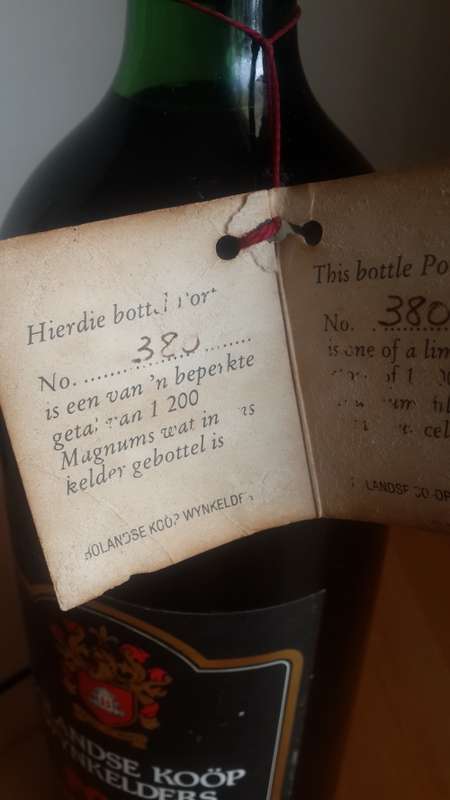 Hierdie bottel Port
No. ........380........
is een van 'n beperkte
getal van 1 200
Magnums wat in ons
kelder gebottel is
BOLANDSE KOÖP WYNKELDERS
This bottle Po
No. .380
is one of a lim
of 1
cel
LANDSE CO-OP
LANDSE KOÖP
WYNKELDERS